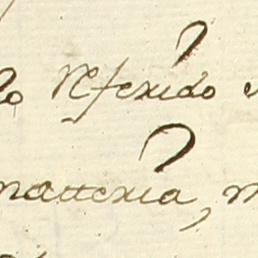 lo referido
matteria,